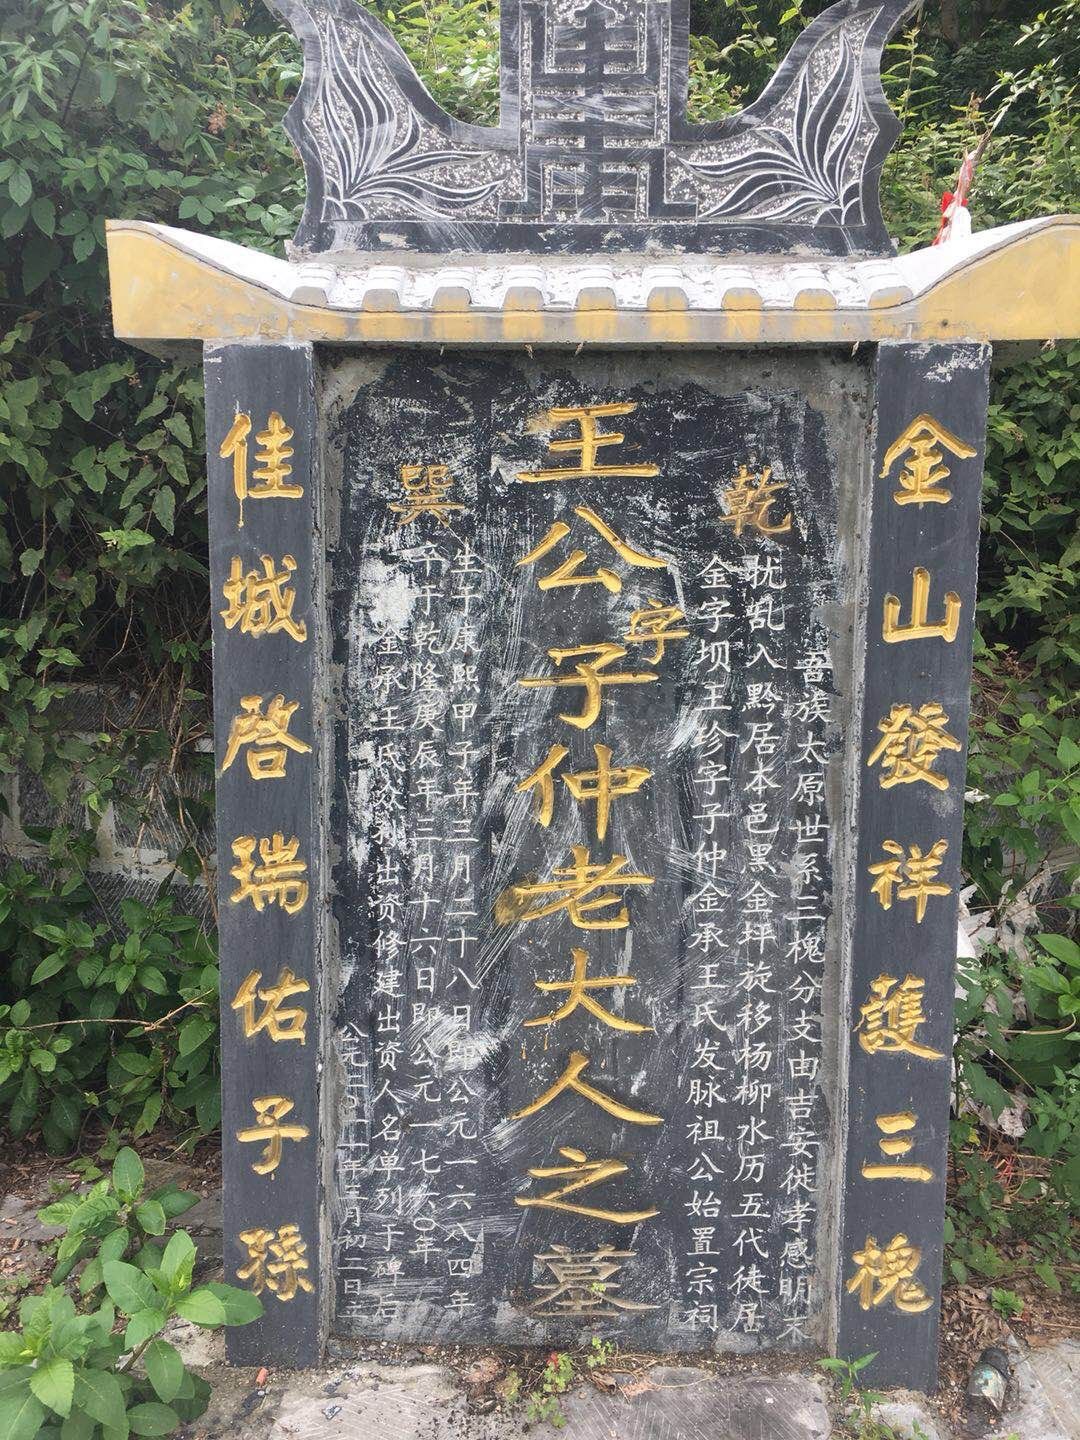 金山發祥護三槐
乾
吾族太原世系三槐分支由吉安徙孝感明末
扰乱入黔居本邑黑金坪旋移杨柳水历五代徒居
金字坝王珍字子仲金承王氏发脉祖公始置宗祠
王公字子仲老大人之墓
巽
生于康熙甲子年三月二十八日即公元一六八四年
卒于乾隆庚辰年三月十六日即公元一七六〇年
金承王氏众孙出资修建出资人名单列于碑后
公元二〇一一年三月初二日立
佳城啓瑞佑子孫